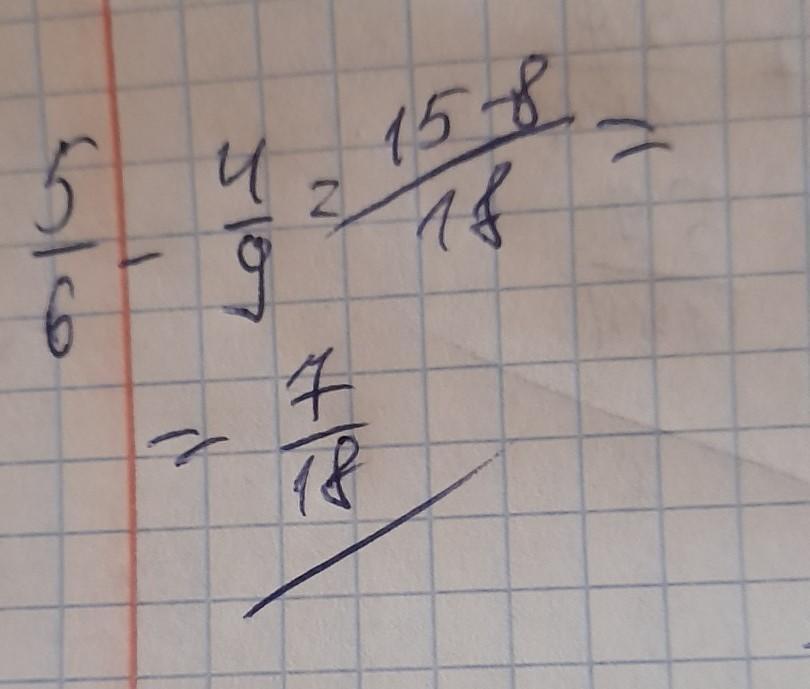 5/6 - 4/9 = 15-8/18 =
= 7/18